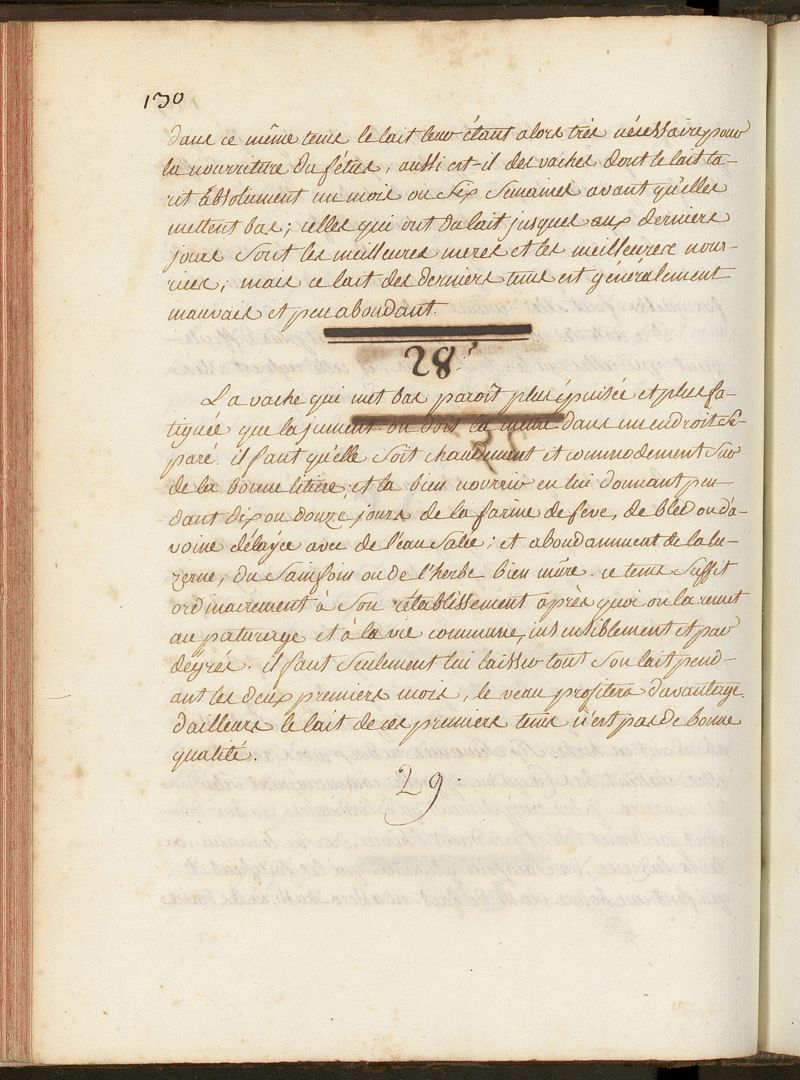 130
dans ce même tems le lait leur étant alors très nécessaire pour
la nourriture du fétus, aussi est-il des vaches dont le lait ta-
rit absolument un mois ou six semaines avant qu'elles
mettent bas; celles qui ont du lait jusques aux derniers
jours sont les meilleures meres et les meilleures nour-
rices; mais ce lait des derniers tems est généralement
mauvais et peu abondant.
28.
La vache qui met bas paroît plus épuisée et plus fa-
tiguée que la jument. on doit la mettre dans un endroit sé-
paré. il faut qu'elle soit chaudement et commodement sur
de la bonne litiere, et la bien nourrir en lui donnant pen-
dant dix ou douze jours de la farine de feve, de bled ou d'a-
voine délayée avec de l'eau salée; et abondamment de la lu-
zerne, du sainfoin ou de l'herbe bien mûre. ce tems suffit
ordinairement à son rétablissement après quoi on la remet
au paturage et à la vie commune, insensiblement et par
dégrés. il faut seulement lui laisser tout son lait pend-
ant les deux premiers mois, le veau profitera davantage.
d'ailleurs le lait de ces premiers tems n'est pas de bonne
qualité.
29.